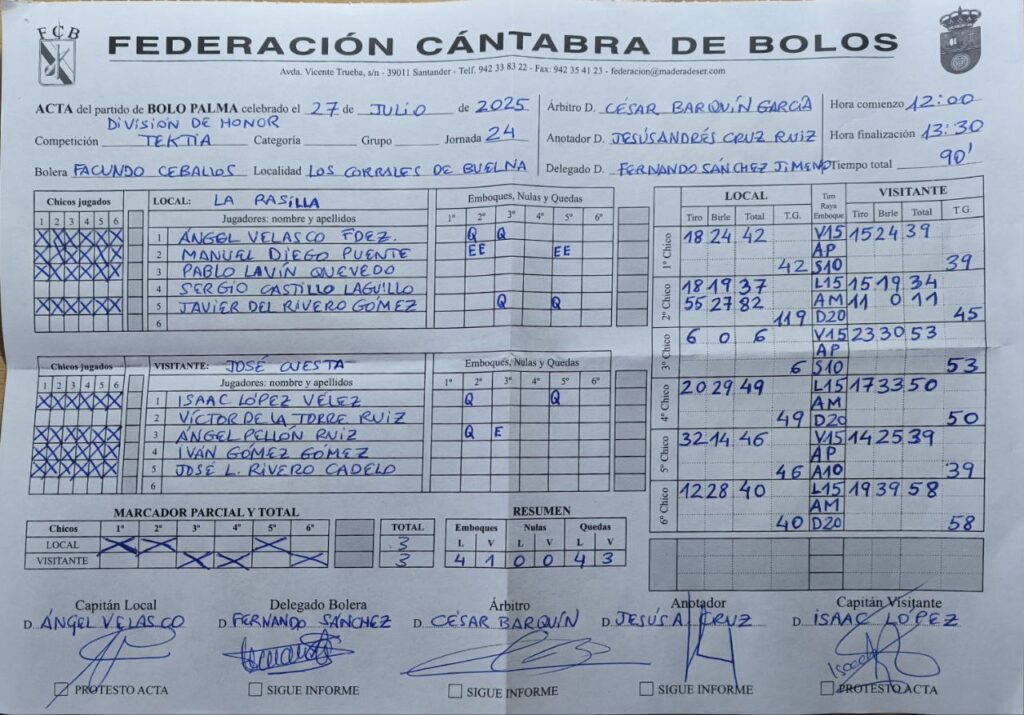 FCB
FEDERACIÓN CÁNTABRA DE BOLOS
Avda. Vicente Trueba, s/n - 39011 Santander - Telf. 942 33 83 22 - Fax: 942 35 41 23 - federacion@maderadeser.com
ACTA del partido de BOLO PALMA celebrado el 27 de JULIO de 2025
DIVISION DE HONOR
Competición TEKTIA Categoría Grupo Jornada 24
Bolera FACUNDO CEBALLOS Localidad LOS CORRALES DE BUELNA
Árbitro D. CÉSAR BARQUÍN GARCÍA
Anotador D. JESÚS ANDRÉS CRUZ RUIZ
Delegado D. FERNANDO SÁNCHEZ JIMENO
Hora comienzo 12:00
Hora finalización 13:30
Tiempo total 90'
Chicos jugados LOCAL: LA RASILLA Emboques, Nulas y Quedas
1 2 3 4 5 6 Jugadores: nombre y apellidos 1º 2º 3º 4º 5º 6º
X X X X X X 1 ÁNGEL VELASCO FDEZ. Q Q
X X X X X X 2 MANUEL DIEGO PUENTE EE EE
X X X X X X 3 PABLO LAVÍN QUEVEDO
4 SERGIO CASTILLO LAGUILLO
X X X X X X 5 JAVIER DEL RIVERO GÓMEZ Q Q
6
Chicos jugados VISITANTE: JOSÉ CUESTA Emboques, Nulas y Quedas
1 2 3 4 5 6 Jugadores: nombre y apellidos 1º 2º 3º 4º 5º 6º
X X X X X X 1 ISAAC LÓPEZ VÉLEZ Q Q
2 VÍCTOR DE LA TORRE RUIZ
X X X X X X 3 ÁNGEL PELLÓN RUIZ Q E
X X X X X X 4 IVÁN GÓMEZ GÓMEZ
X X X X X X 5 JOSÉ L. RIVERO CADELO
6
LOCAL Tiro Raya Emboque VISITANTE
Tiro Birle Total T.G. Tiro Birle Total T.G.
1º Chico 18 24 42 V15 15 24 39
AP
42 S10 39
2º Chico 18 19 37 L15 15 19 34
55 27 82 AM 11 0 11
119 D20 45
3º Chico 6 0 6 V15 23 30 53
AP
6 S10 53
4º Chico 20 29 49 L15 17 33 50
AM
49 D20 50
5º Chico 32 14 46 V15 14 25 39
AP
46 A10 39
6º Chico 12 28 40 L15 19 39 58
AM
40 D20 58
MARCADOR PARCIAL Y TOTAL
Chicos 1º 2º 3º 4º 5º 6º TOTAL
LOCAL X X X 3
VISITANTE X X X 3
RESUMEN
Emboques Nulas Quedas
L V L V L V
4 1 0 0 4 3
Capitán Local
D. ÁNGEL VELASCO
PROTESTO ACTA
Delegado Bolera
D. FERNANDO SÁNCHEZ
SIGUE INFORME
Árbitro
D. CÉSAR BARQUÍN
SIGUE INFORME
Anotador
D. JESÚS A. CRUZ
SIGUE INFORME
Capitán Visitante
D. ISAAC LÓPEZ
PROTESTO ACTA